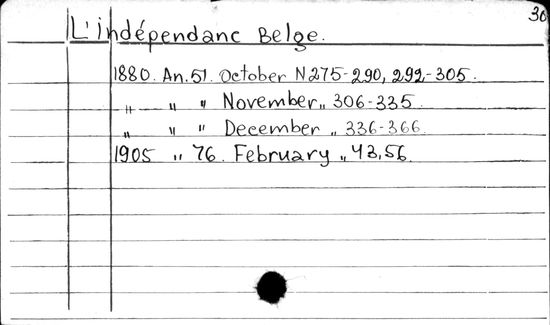 30
L'indépendanc Belge.
1880. An. 51. October N 275-290, 292-305.
" " " November " 306-335
" " " December " 336-366.
1905 " 76. February " 43,56.